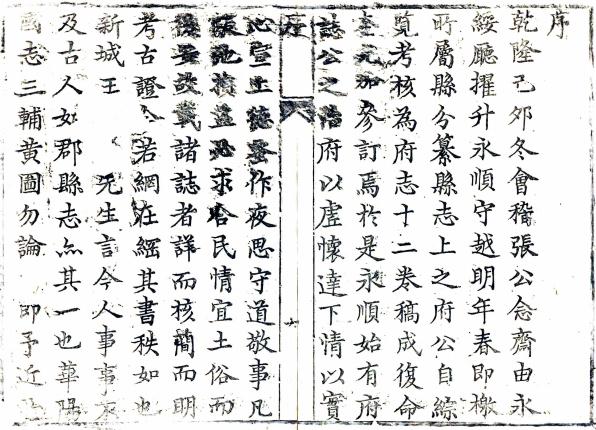 序
乾隆己夘冬會稽張公念齋由永
綏廳擢升永順守越明年春即檄
所屬縣分纂縣志上之府公自綜
覽考核為府志十二卷稿成復命
加參訂焉於是永順始有府
誌公之治府以虛懷達下情以實
序
心土德蚤作夜思守道敬事凡
張弛損益必求合民情宜土俗而
後安故載諸誌者詳而核簡而明
考古證今若網在綱其書秩如也
新城王 先生言今人事事不
及古人如郡縣志亦其一也華陽
國志三輔黃圖勿論 即予近